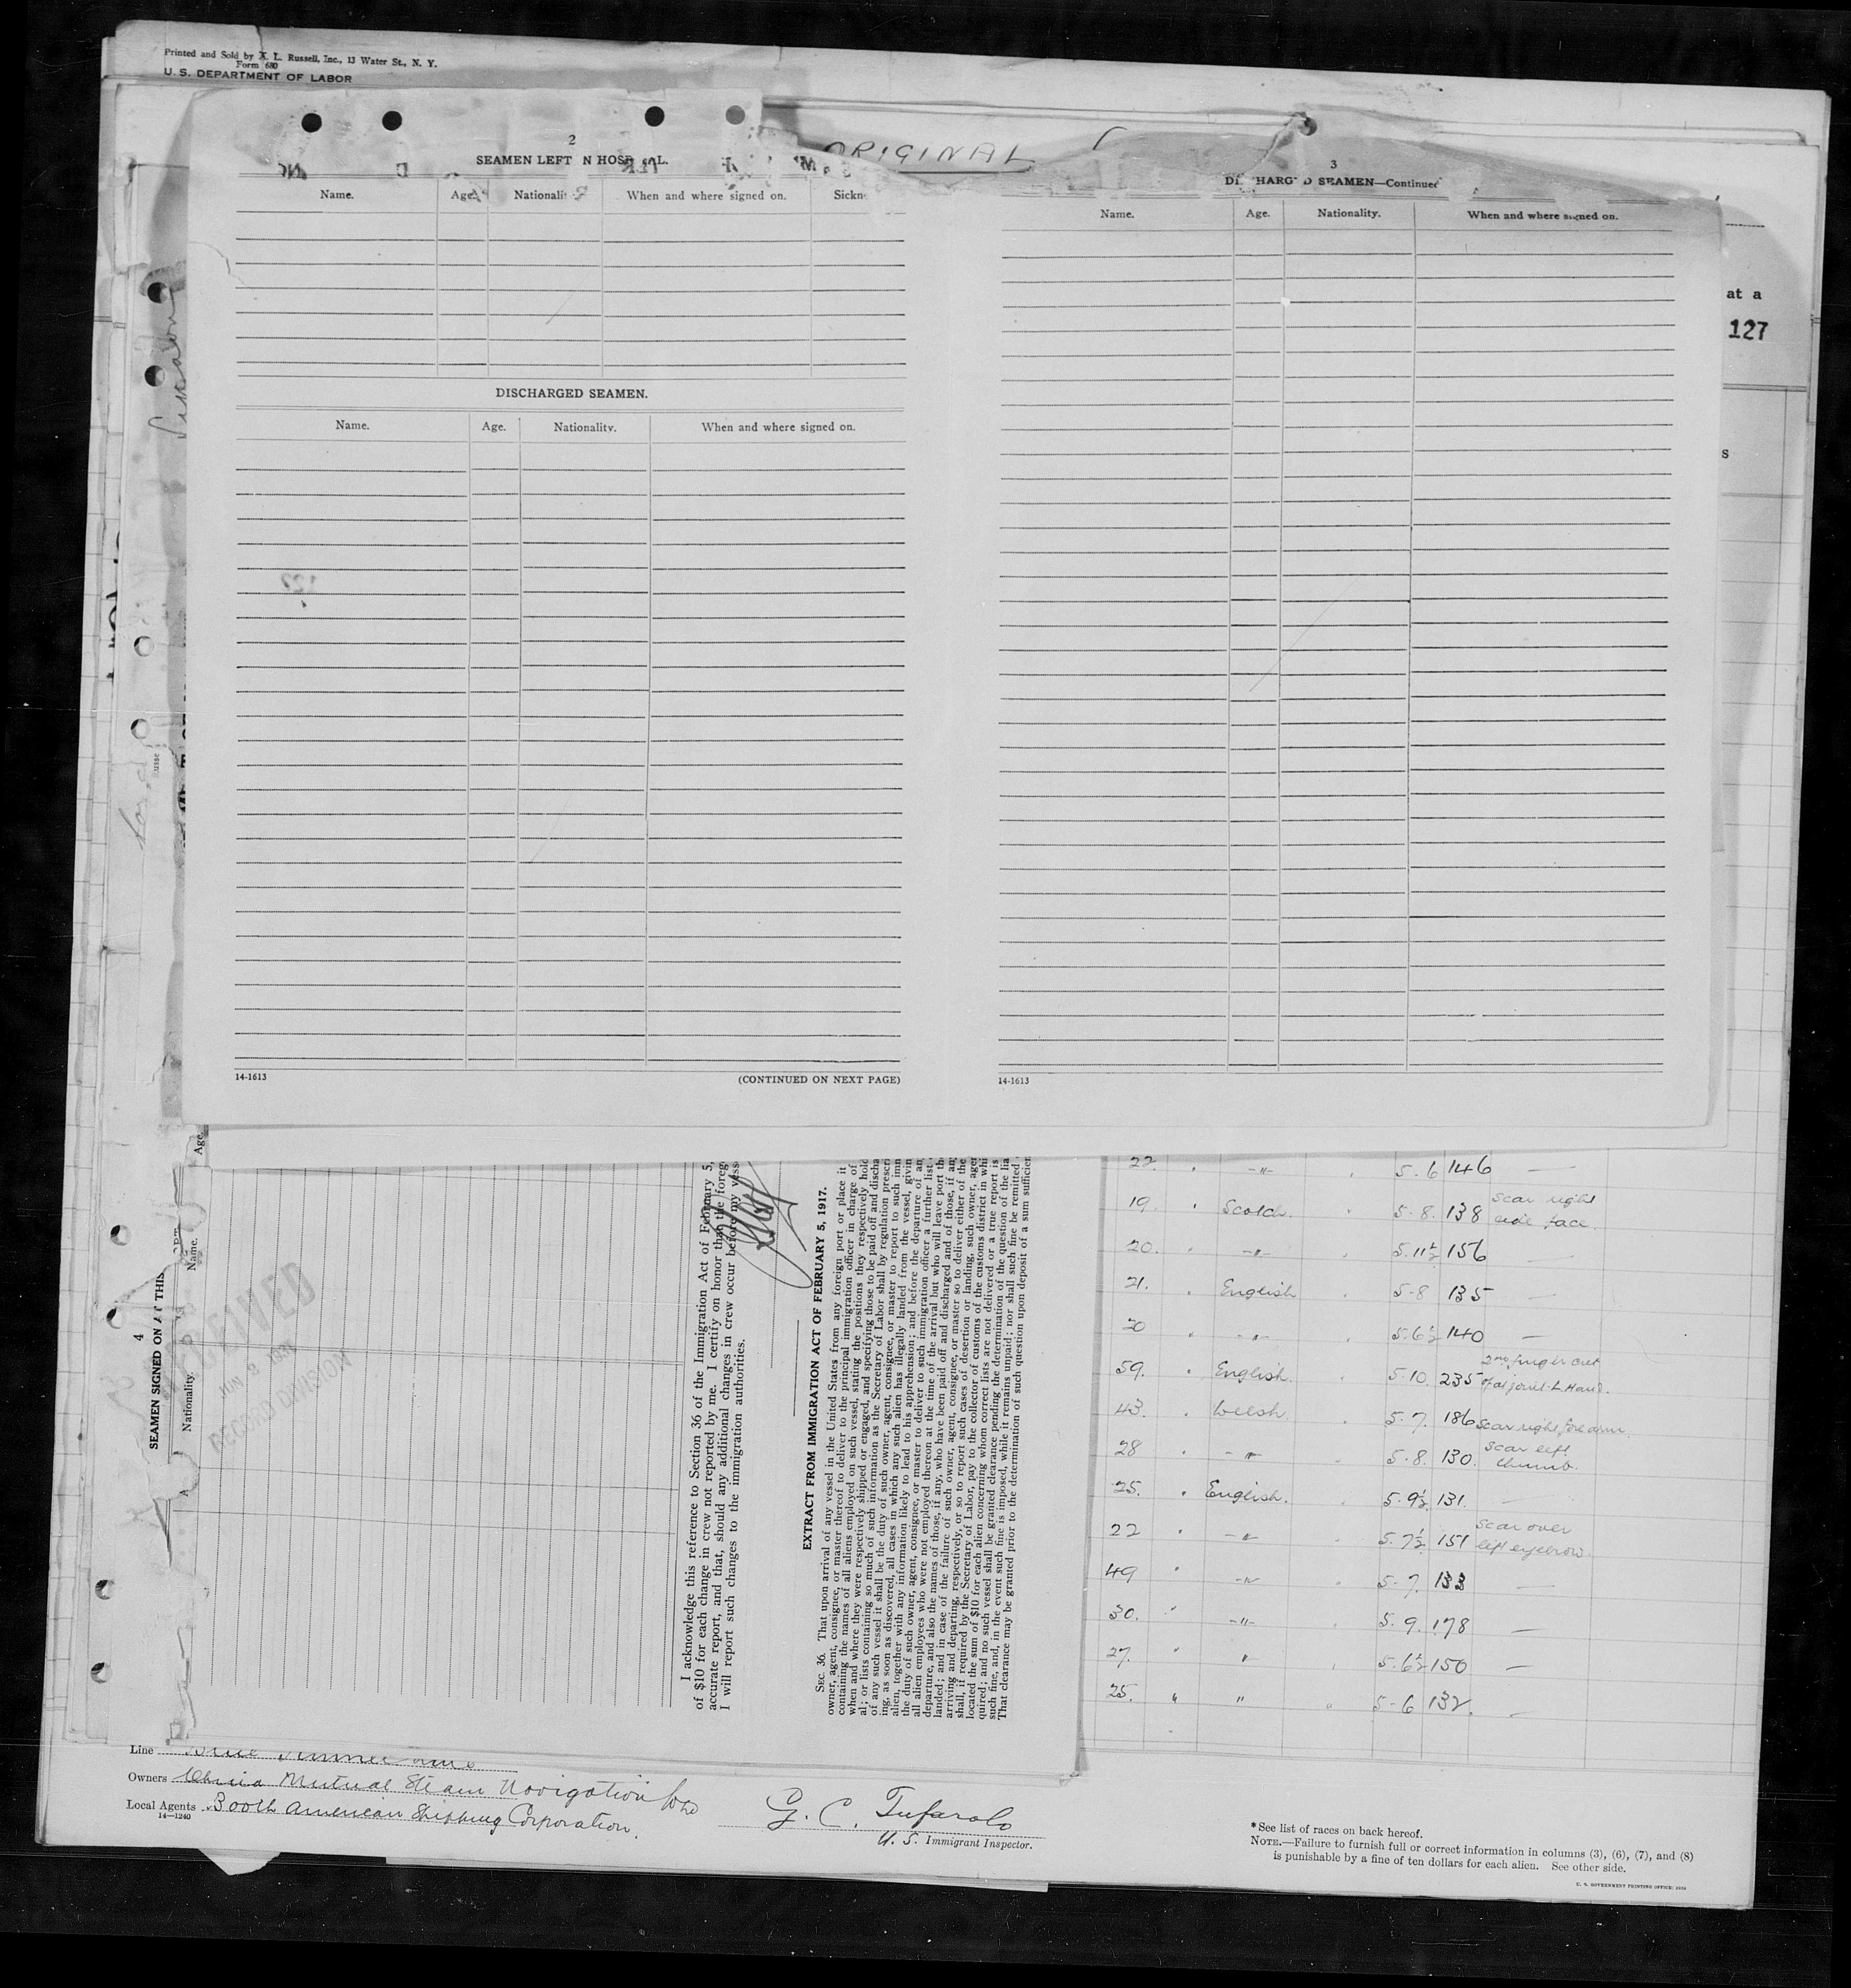 Printed and Sold by X. L. Russell, Inc., 13 Water St., N. Y.
Form 680
U. S. DEPARTMENT OF LABOR
ORIGINAL
2
SEAMEN LEFT N HOSP L.
Name. Age. Nationali When and where signed on. Sickn
DISCHARGED SEAMEN.
Name. Age. Nationality. When and where signed on.
14-1613 (CONTINUED ON NEXT PAGE)
3
DI HARG D SEAMEN—Continued
Name. Age. Nationality. When and where signed on.
14-1613
at a
127
s
4
SEAMEN SIGNED ON AT THIS
Name. Age.
Nationality.
RECEIVED
JUN 9
RECORD DIVISION
I acknowledge this reference to Section 36 of the Immigration Act of February 5,
of $10 for each change in crew not reported by me. I certify on honor that the forego
accurate report, and that, should any additional changes in crew occur before my vesse
I will report such changes to the immigration authorities.
EXTRACT FROM IMMIGRATION ACT OF FEBRUARY 5, 1917.
SEC. 36. That upon arrival of any vessel in the United States from any foreign port or place it
owner, agent, consignee, or master thereof to deliver to the principal immigration officer in charge of
containing the names of all aliens employed on such vessel, stating the positions they respectively hold
when and where they were respectively shipped or engaged, and specifying those to be paid off and discha
al; or lists containing so much of such information as the Secretary of Labor shall by regulation prescri
of any such vessel it shall be the duty of such owner, agent, consignee, or master to report to such imm
ing, as soon as discovered, all cases in which any such alien has illegally landed from the vessel, givin
alien, together with any information likely to lead to his apprehension; and before the departure of an
the duty of such owner, agent, consignee, or master to deliver to such immigration officer a further list
all alien employees who were not employed thereon at the time of the arrival but who will leave port the
departure, and also the names of those, if any, who have been paid off and discharged and of those, if any
landed; and in case of the failure of such owner, agent, consignee, or master so to deliver either of the
arriving and departing, respectively, or so to report such cases of desertion or landing, such owner, agen
shall, if required by the Secretary of Labor, pay to the collector of customs of the customs district in whi
located the sum of $10 for each alien concerning whom correct lists are not delivered or a true report is
quired; and no such vessel shall be granted clearance pending the determination of the question of the lia
such fine, and, in the event such fine is imposed, while it remains unpaid; nor shall such fine be remitted
That clearance may be granted prior to the determination of such question upon deposit of a sum sufficien
22. " -"- " 5-6 146 —
19. " Scotch. " 5-8. 138 Scar right side face.
20. " -"- " 5.11½ 156 —
21. " English " 5-8 135 —
20 " -"- " 5.6½ 140 —
59. " English. " 5-10. 235 2nd finger cut off at joint L Hand.
43. " Welsh. " 5-7. 186 Scar right forearm.
28 " -"- " 5-8. 130. Scar left thumb.
25. " English. " 5-9½ 131. —
22 " -"- " 5.7½ 151 Scar over left eyebrow.
49 " -"- " 5-7. 133 —
30. " -"- " 5.9. 178 —
27. " " " 5.6½ 150 —
25. " " " 5-6 132. —
Line
Owners China Mutual Steam Navigation Co Ld
Local Agents Booth American Shipping Corporation.
14—1240
G. C. Tufarolo
U. S. Immigrant Inspector.
*See list of races on back hereof.
NOTE.—Failure to furnish full or correct information in columns (3), (6), (7), and (8)
is punishable by a fine of ten dollars for each alien. See other side.
U. S. GOVERNMENT PRINTING OFFICE